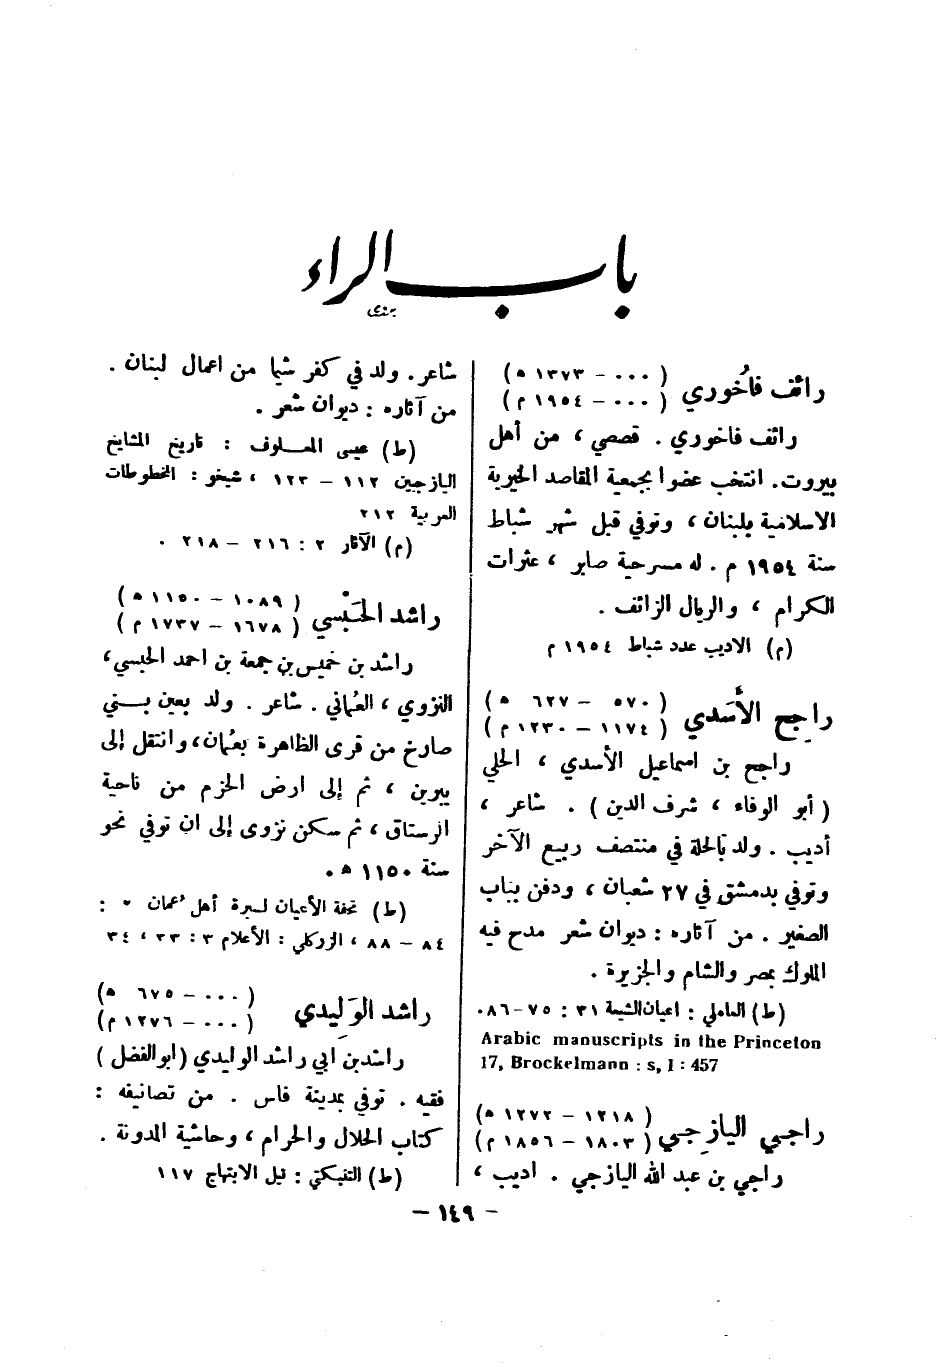 باب الراء
رائف فاخُوري (٠٠٠ – ١٣٧٣ ه)
(٠٠٠ – ١٩٥٤ م)
رائف فاخوري . قصصي ، من أهل
بيروت. انتخب عضوا بجمعية المقاصد الخيرية
الاسلامية بلبنان ، وتوفي قبل شهر شباط
سنة ١٩٥٤ م . له مسرحية صابر ، عثرات
الكرام ، والريال الزائف .
(م) الاديب عدد شباط ١٩٥٤ م
راجح الأَسَدي (٥٧٠ – ٦٢٧ ه)
(١١٧٤ – ١٢٣٠ م)
راجح بن اسماعيل الأسدي ، الحلي
( أبو الوفاء ، شرف الدين ) . شاعر ،
أديب . ولد بالحلة في منتصف ربيع الآخر
وتوفي بدمشق في ٢٧ شعبان ، ودفن بباب
الصغير . من آثاره : ديوان شعر مدح فيه
الملوك بمصر والشام والجزيرة .
(ط) العاملي : اعيان الشيعة ٣١ : ٧٥ – ٨٦.
Arabic manuscripts in the Princeton
17, Brockelmann : s, I : 457
راجي اليازِجي (١٢١٨ – ١٢٧٢ ه)
(١٨٠٣ – ١٨٥٦ م)
راجي بن عبد الله اليازجي . اديب ،
شاعر. ولد في كفر شيما من اعمال لبنان .
من آثاره : ديوان شعر .
(ط) عيسى المعلوف : تاريخ المشايخ
اليازجيين ١١٢ – ١٢٣ ، شيخو : المخطوطات
العربية ٢١٢
(م) الآثار ٢ : ٢١٦ – ٢١٨ .
راشد الحَبْسي (١٠٨٩ – ١١٥٠ ه)
(١٦٧٨ – ١٧٣٧ م)
راشد بن خميس بن جمعة بن احمد الحبسي،
النزوي ، العُماني . شاعر . ولد بعين بني
صارخ من قرى الظاهرة بعُمان، وانتقل إلى
يبرين ، ثم إلى ارض الحزم من ناحية
الرستاق ، ثم سكن نزوى إلى ان توفي نحو
سنة ١١٥٠ ه.
(ط) تحفة الأعيان لسيرة أهل عُمان ٢ :
٨٤ – ٨٨ ، الزركلي : الأعلام ٣ : ٣٣ ، ٣٤
راشد الوَلِيدي (٠٠٠ – ٦٧٥ ه)
(٠٠٠ – ١٢٧٦ م)
راشد بن ابي راشد الوليدي (ابو الفضل)
فقيه . توفي بمدينة فاس . من تصانيفه :
كتاب الحلال والحرام ، وحاشية المدونة .
(ط) التنبكتي : نيل الابتهاج ١١٧
– ١٤٩ –